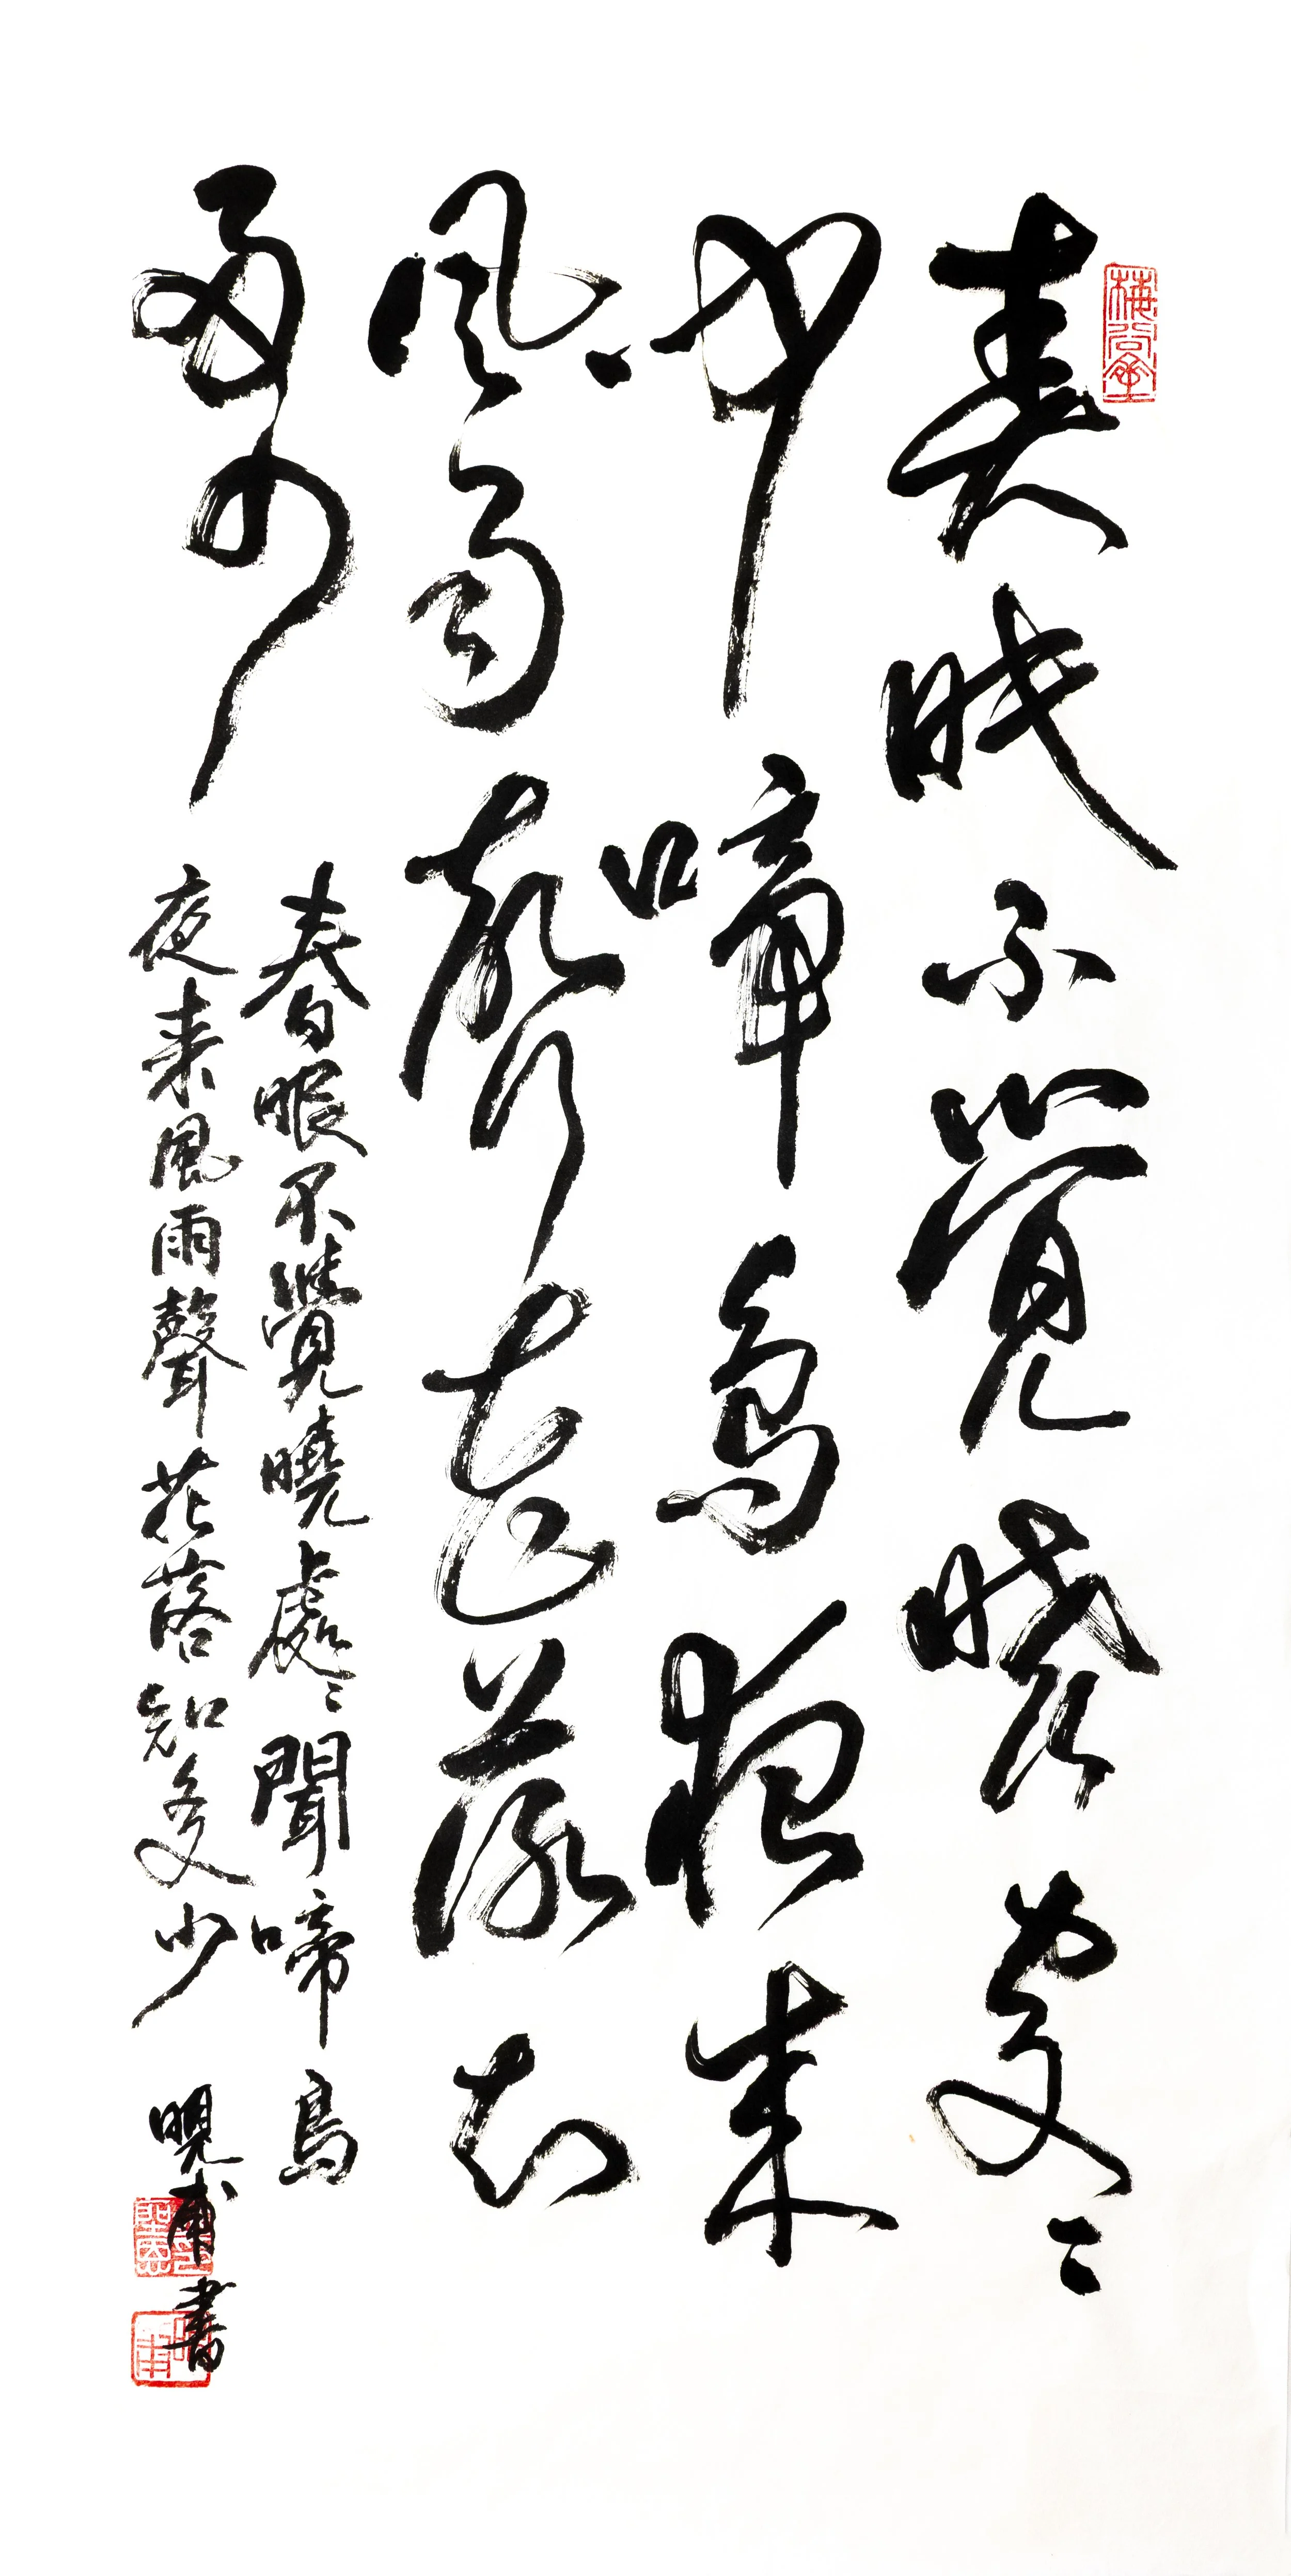 春眠不覺曉處々
聞啼鳥夜来
風雨聲花落知
多少
春眠不覺曉處々聞啼鳥
夜来風雨聲花落知多少 晛甫書